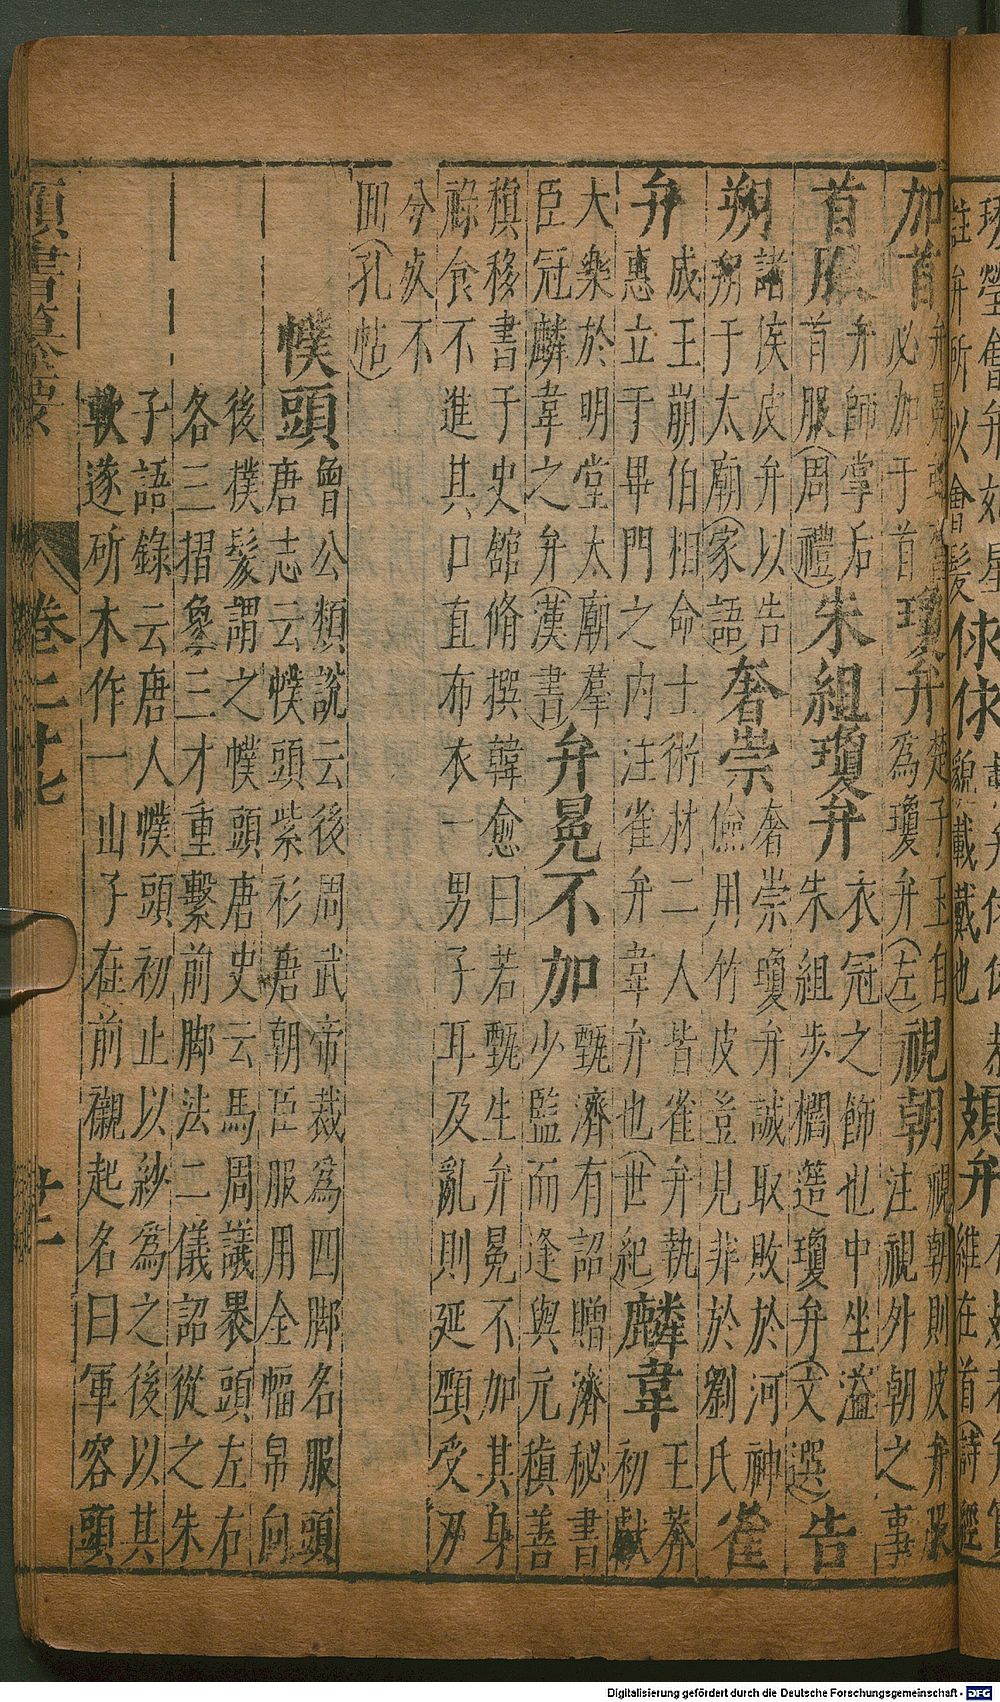 註弁所以會髮俅俅貌載戴也頍弁維在首(詩經
加首弁冕雖敝必加于首瓊弁楚子玉自爲瓊弁(左)視朝視朝則皮弁服注視外朝之事
首服弁師掌后首服(周禮)朱組瓊弁衣冠之飾也中坐溢朱組步櫩簉瓊弁(文選)告
朔諸侯皮弁以告朔于太廟(家語)奢崇奢崇瓊弁誠取敗於河神儉用竹皮豈見非於劉氏雀
弁成王崩伯相命士術材二人皆雀弁執惠立于畢門之内注雀弁韋弁也(世紀)麟韋王莽初獻
大樂於明堂太廟羣臣冠麟韋之弁(漢書)弁冕不加甄濟有詔贈濟秘書少監而逢與元稹善
稹移書于史舘脩撰韓愈曰若甄生弁冕不加其身祿食不進其口直布衣一男子耳及亂則延頸受刃
分死不回(孔帖)
幞頭曾公類說云後周武帝裁爲四脚名服頭唐志云幞頭紫衫唐朝臣服用全幅帛向
後幞髮謂之幞頭唐史云馬周議褁頭左右各三摺象三才重繫前脚法二儀詔從之朱
子語錄云唐人幞頭初止以紗爲之後以其軟遂斫木作一山子在前襯起名曰軍容頭
類書纂要 卷二十七 廿一
Digitalisierung gefördert durch die Deutsche Forschungsgemeinschaft - DFG